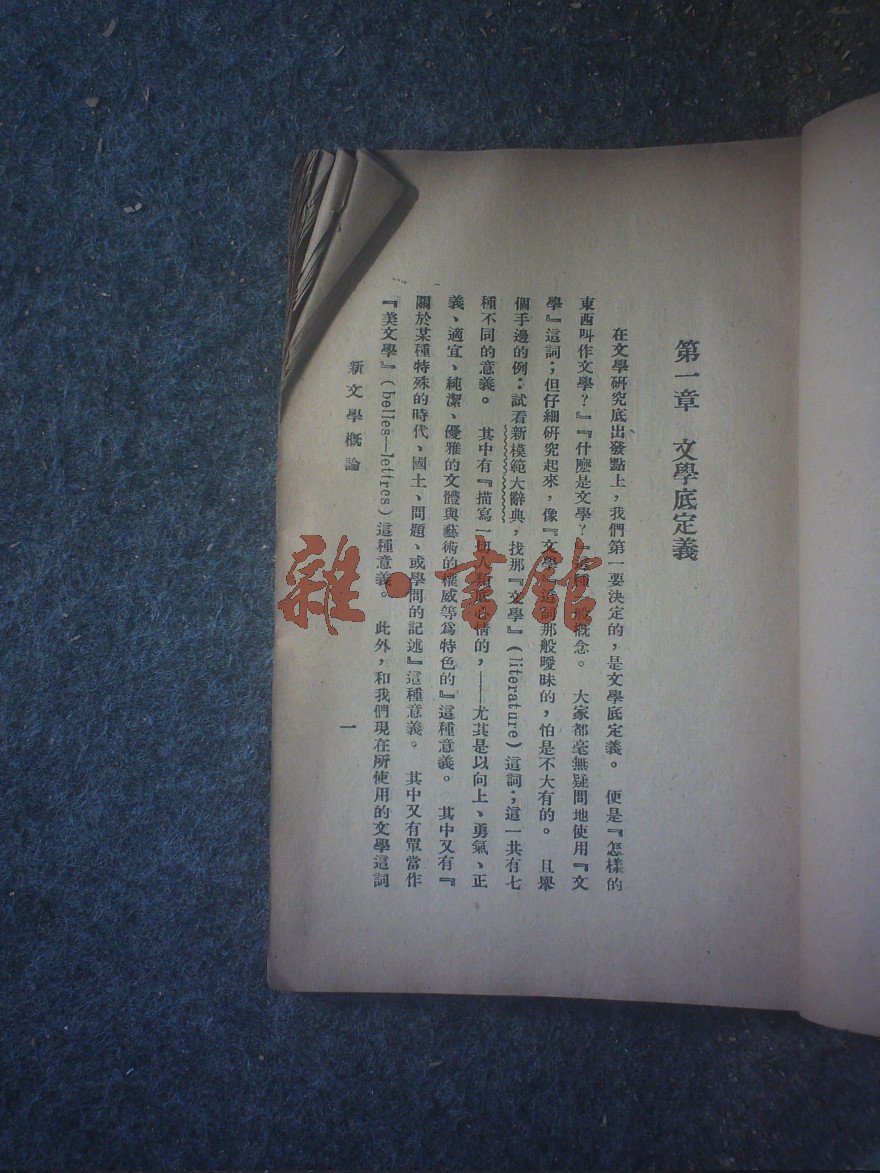 第一章　文學底定義
在文學硏究底出發點上，我們第一要決定的，是文學底定義。　便是『怎樣的
東西叫作文學？』『什麼是文學？』這種一般概念。　大家都毫無疑問地使用『文
學』這詞；但仔細硏究起來，像『文學』這詞那般曖昧的，怕是不大有的。　且舉
個手邊的例：試看新模範大辭典，找那『文學』（literature）這詞；這一共有七
種不同的意義。　其中有『描寫一切人類底心情的，——尤其是以向上、勇氣、正
義、適宜、純潔、優雅的文體與藝術的權威等爲特色的』這種意義。　其中又有『
關於某種特殊的時代、國土、問題、或學問的記述』這種意義。　其中又有單當作
『美文學』（belles—lettres）這種意義。　此外，和我們現在所使用的文學這詞
新文學概論
一
雜·書館